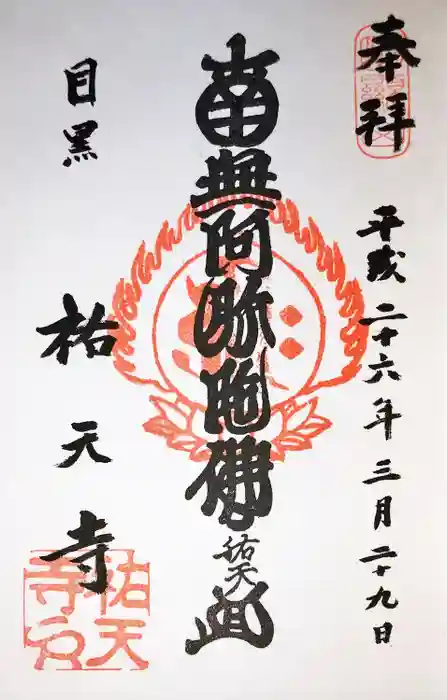 奉拝
平成二十六年三月二十九日
南無阿弥陀佛
祐天
目黒
祐天寺
祐天寺印